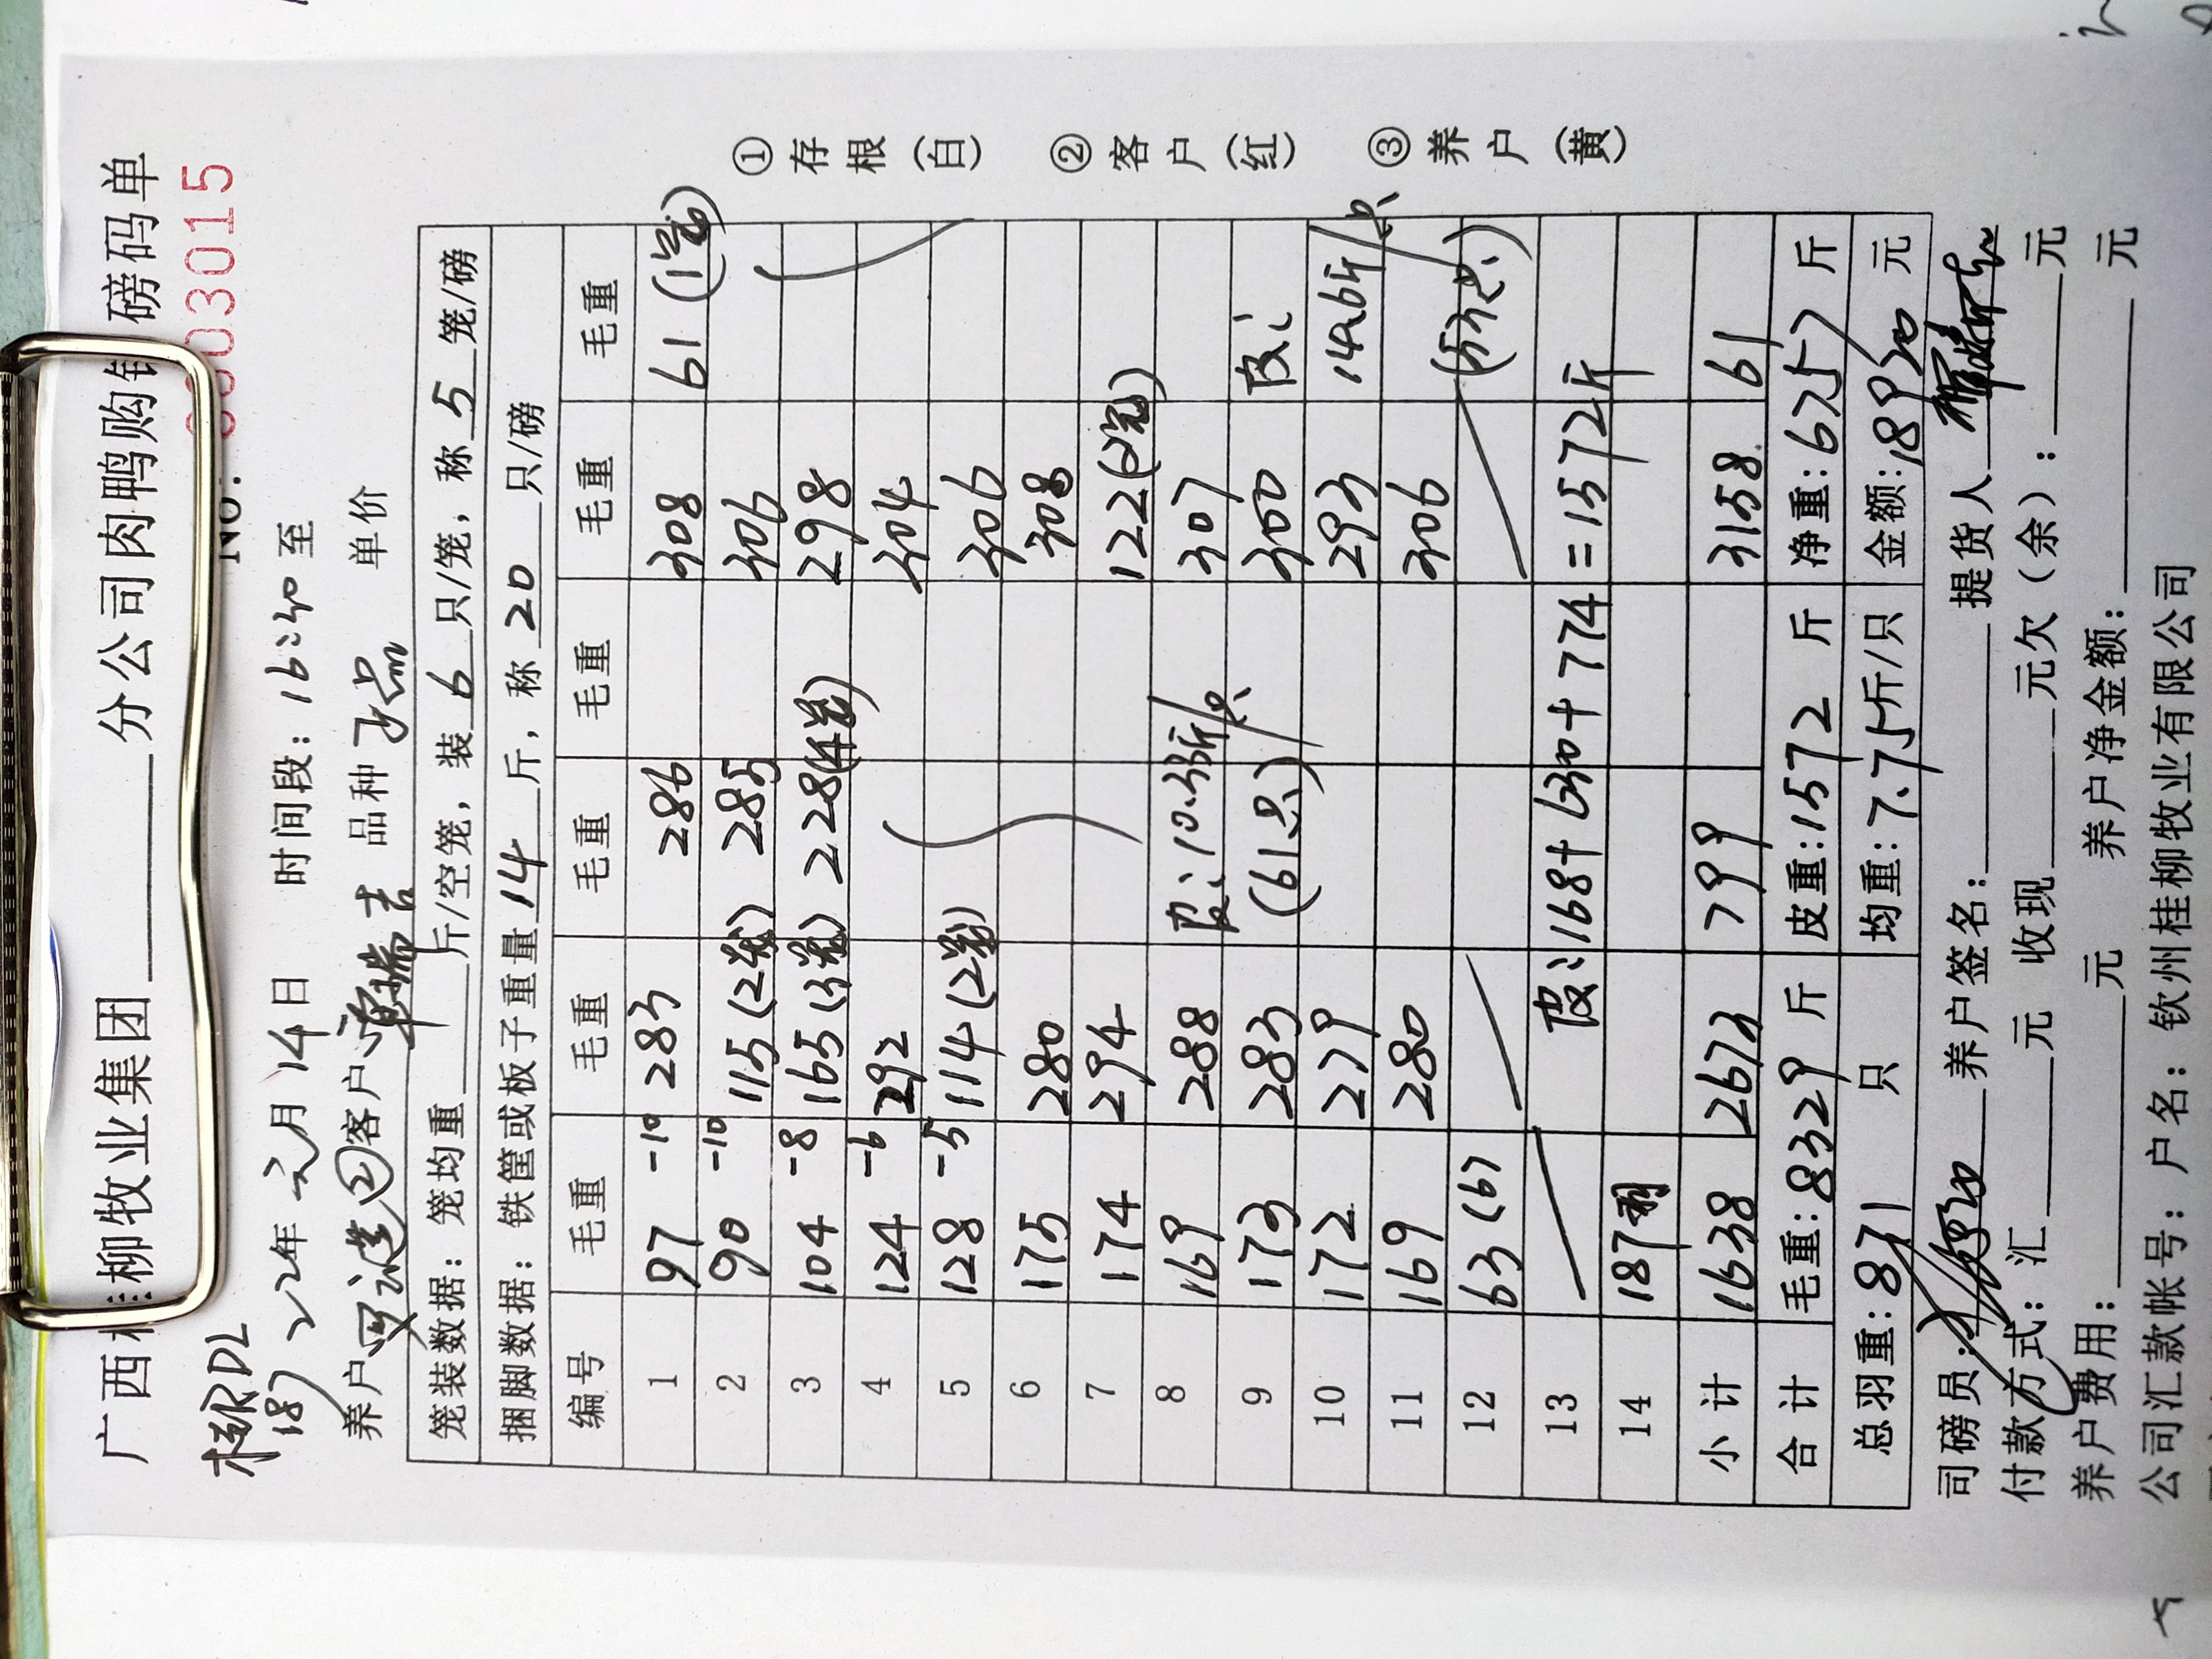 广西 柳牧业集团 分公司肉鸭购销磅码单
No: 0003015
187
22年元月14日 时间段: 16:30至
养户 客户 覃瑞吉 品种 单价
笼装数据: 笼均重 斤/空笼, 装 6 只/笼, 称 5 笼/磅
捆脚数据: 铁筐或板子重量 14 斤, 称 20 只/磅
编号 毛重 毛重 毛重 毛重 毛重 毛重
1 97 -10 283 286 308 61 (1笼)
2 90 -10 115 (2笼) 285 306
3 104 -8 165 (3笼) 228 (4笼) 298
4 124 -6 292 304
5 128 -5 114 (2笼) 306
6 175 280 308
7 174 294 122 (2笼)
8 169 288 皮: 10.33斤/只 307
9 173 283 (61只) 300 皮:
10 172 279 293 14.6斤/只
11 169 280 306
12 63 (6) (53只)
13 皮: 168+630+774=1572斤
14 187羽
小计 1638 2673 799 3158 61
合计 毛重: 8329 斤 皮重: 1572 斤 净重: 6757 斤
总羽重: 871 只 均重: 7.75斤/只 金额: 18920 元
司磅员: 养户签名: 提货人
付款方式: 汇 元 收现 元欠(余): 元
养户费用: 元 养户净金额: 元
公司汇款帐号: 户名: 钦州桂柳牧业有限公司
①存根(白) ②客户(红) ③养户(黄)